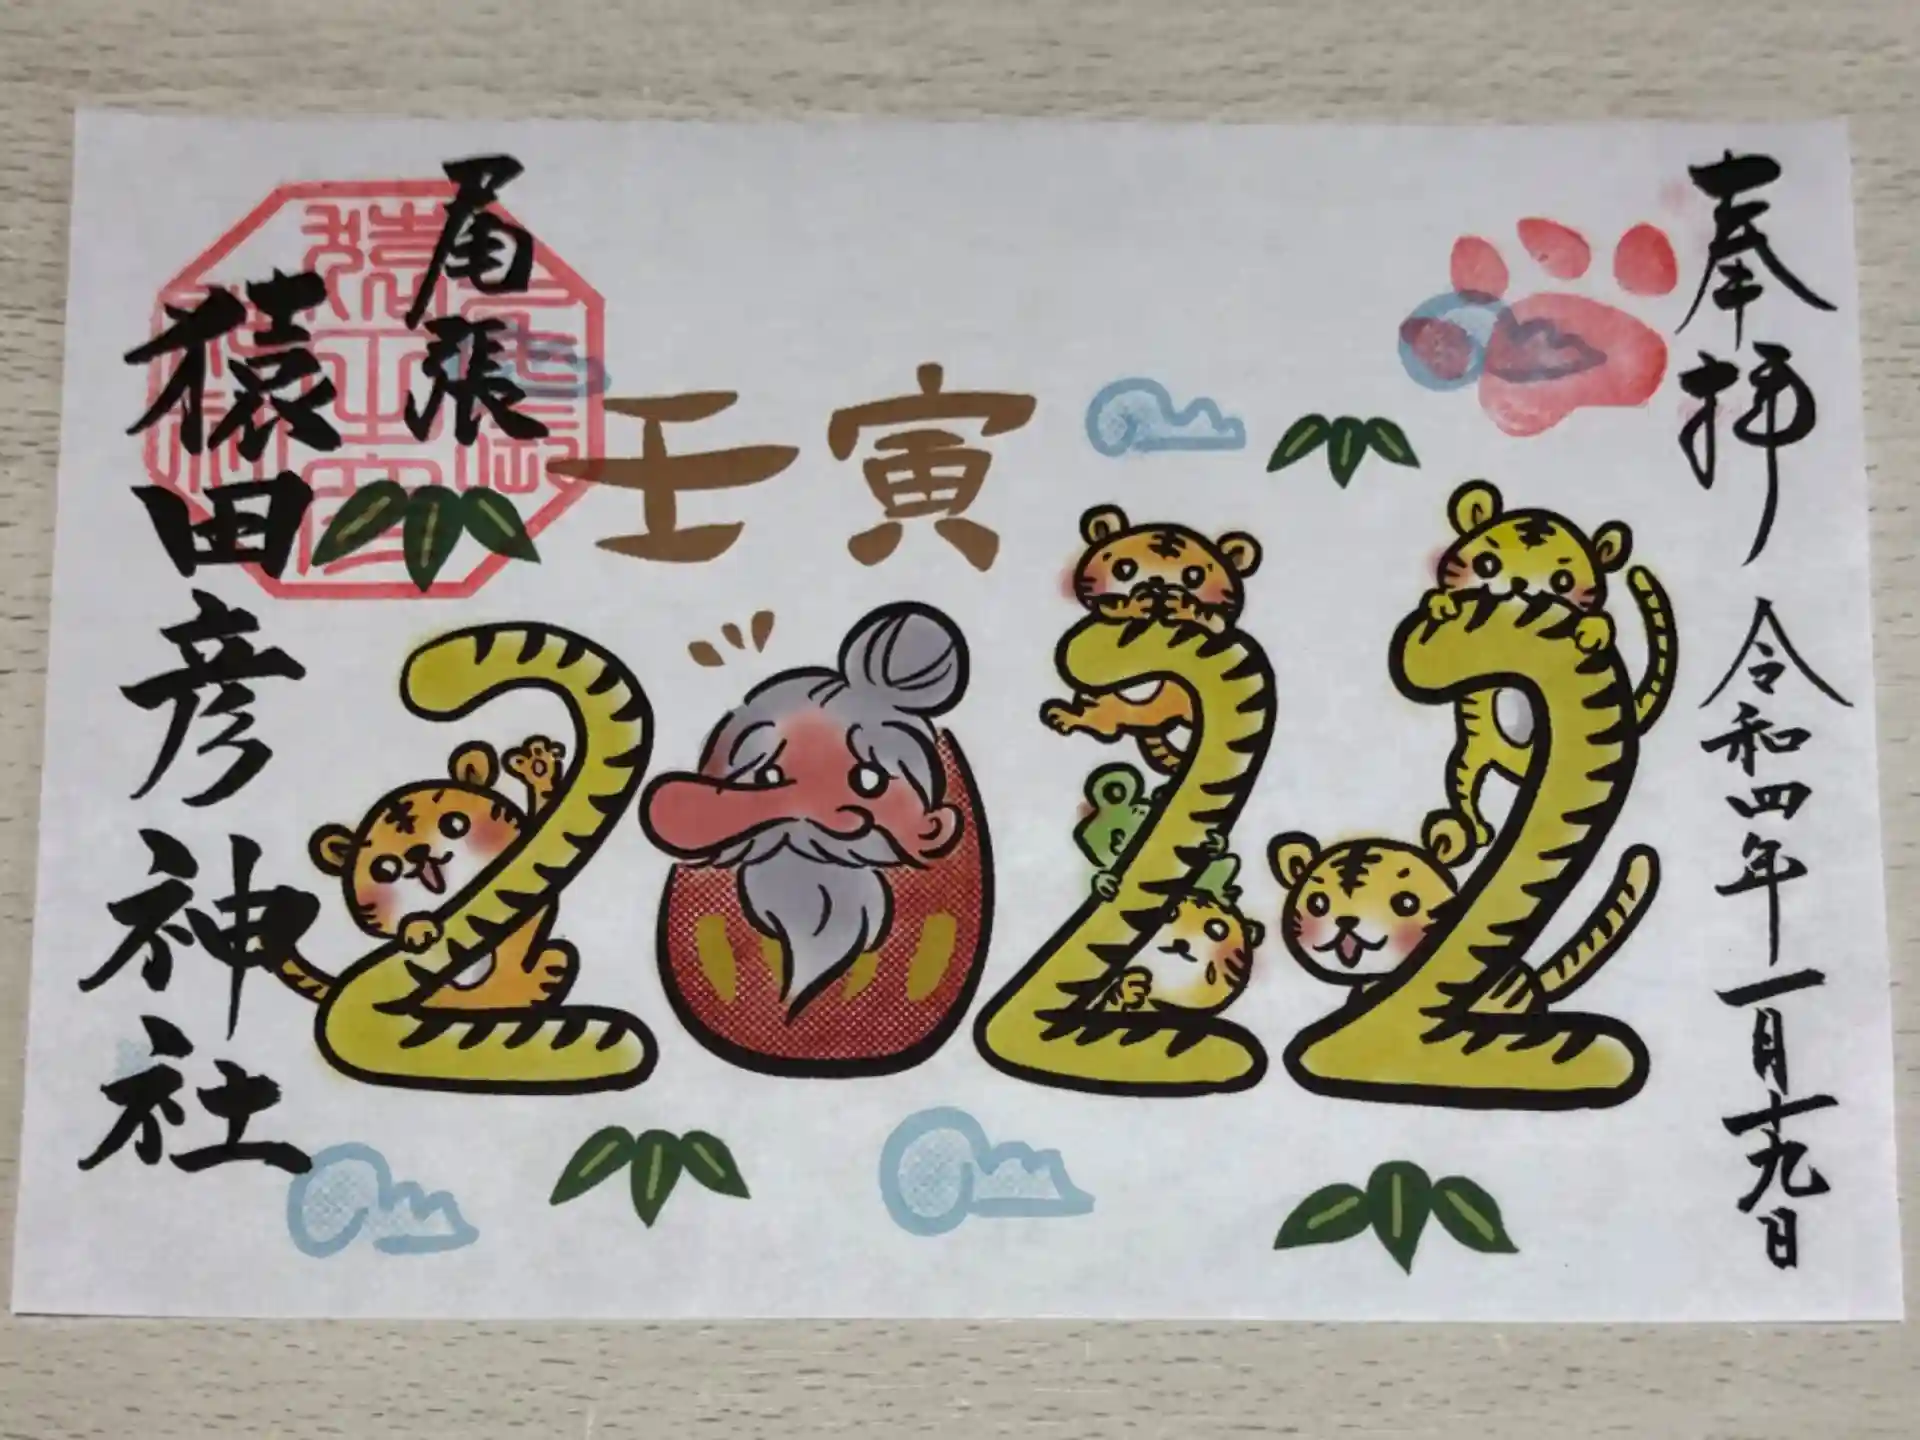 奉拝
令和四年一月十九日
壬寅
2022
尾張
猿田彦神社